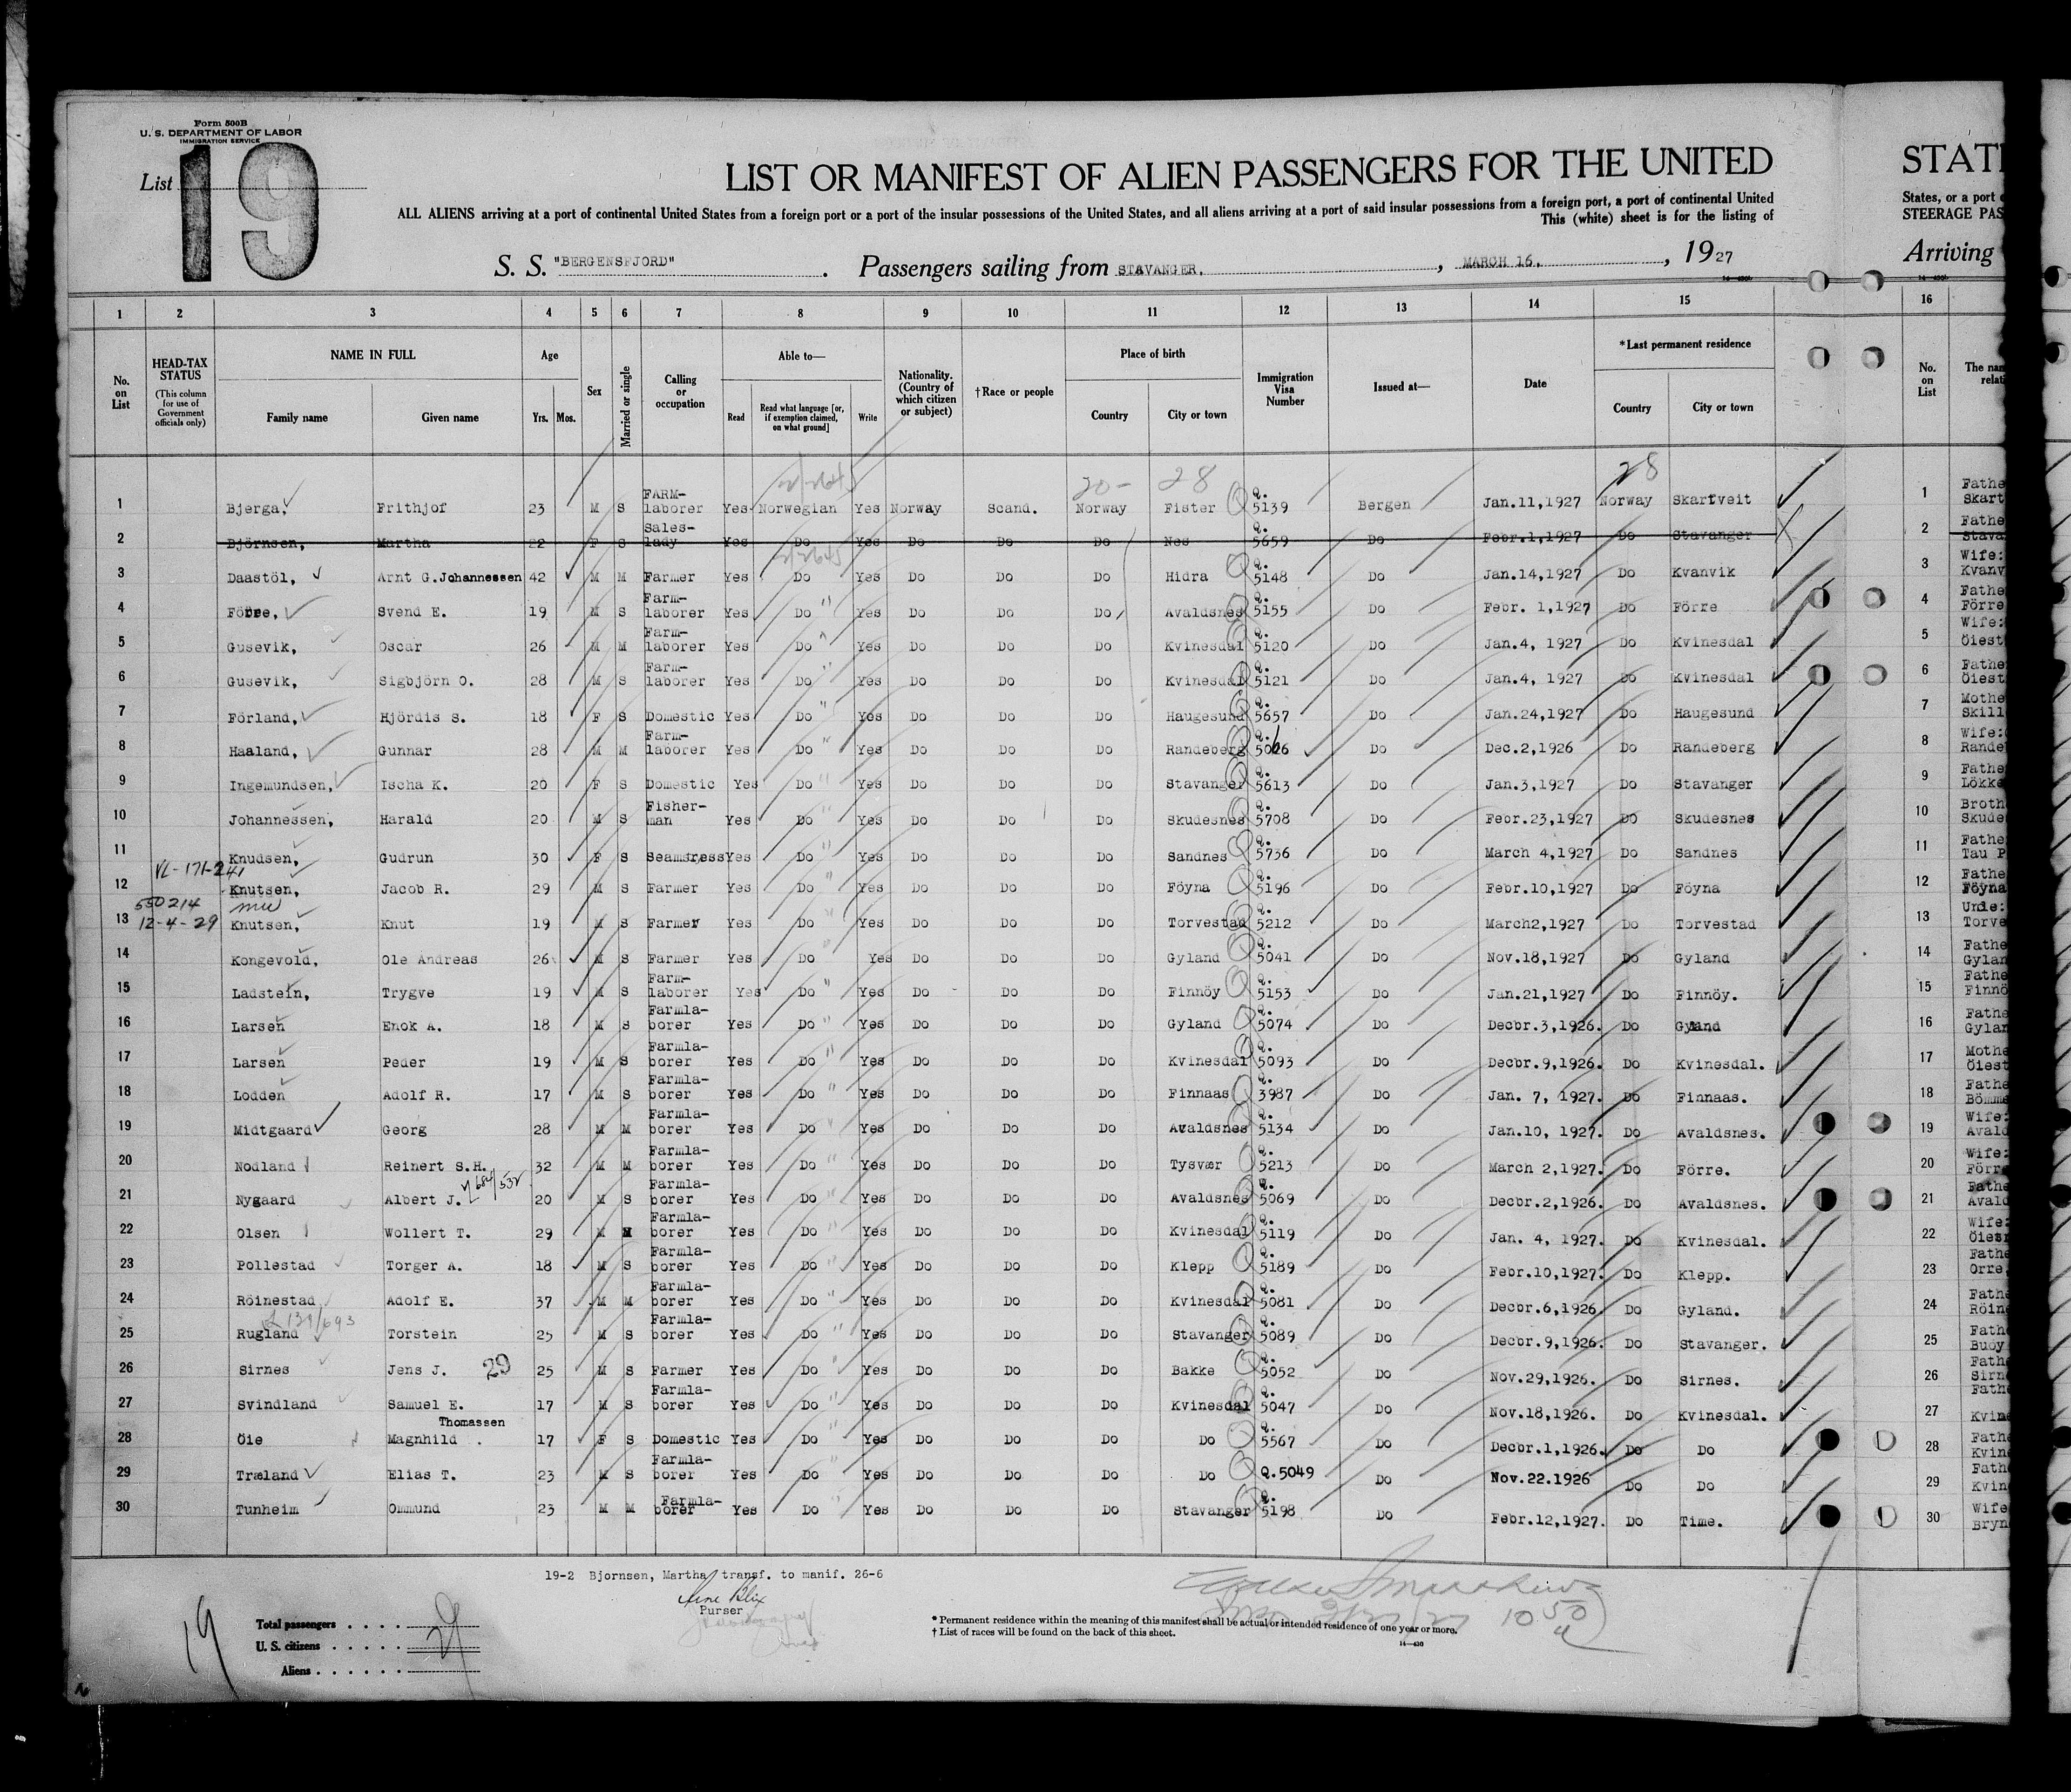 Form 500B
U. S. DEPARTMENT OF LABOR
IMMIGRATION SERVICE
List 19
LIST OR MANIFEST OF ALIEN PASSENGERS FOR THE UNITED
STAT
ALL ALIENS arriving at a port of continental United States from a foreign port or a port of the insular possessions of the United States, and all aliens arriving at a port of said insular possessions from a foreign port, a port of continental United
States, or a port
This (white) sheet is for the listing of
STEERAGE PAS
S. S. "BERGENSFJORD". Passengers sailing from STAVANGER, MARCH 16, 1927
Arriving
1 2 3 4 5 6 7 8 9 10 11 12 13 14 15 16
No. on List
HEAD-TAX STATUS (This column for use of Government officials only)
NAME IN FULL
Family name Given name
Age
Yrs. Mos.
Sex
Married or single
Calling or occupation
Able to—
Read Read what language [or, if exemption claimed, on what ground] Write
Nationality. (Country of which citizen or subject)
†Race or people
Place of birth
Country City or town
Immigration Visa Number
Issued at—
Date
*Last permanent residence
Country City or town
No. on List
The nam
relati
20- 28 28
1 Bjerga, Frithjof 23 M S FARM-laborer Yes Norwegian Yes Norway Scand. Norway Fister Q. 5139 Bergen Jan.11,1927 Norway Skartveit 1 Fathe Skart
2 Björnsen, Martha 22 F S Sales-lady Yes Do Yes Do Do Do Nes Q. 5659 Do Febr.1,1927 Do Stavanger 2 Fathe Stava
3 Daastöl, Arnt G.Johannessen 42 M M Farmer Yes Do Yes Do Do Do Hidra Q. 5148 Do Jan.14,1927 Do Kvanvik 3 Wife: Kvanv
4 Förre, Svend E. 19 M S Farm-laborer Yes Do " Yes Do Do Do Avaldsnes Q. 5155 Do Febr. 1,1927 Do Förre 4 Fathe Förre
5 Gusevik, Oscar 26 M M Farm-laborer Yes Do " Yes Do Do Do Kvinesdal Q. 5120 Do Jan.4, 1927 Do Kvinesdal 5 Wife: Öiest
6 Gusevik, Sigbjörn O. 28 M S Farm-laborer Yes Do " Yes Do Do Do Kvinesdal Q. 5121 Do Jan.4, 1927 Do Kvinesdal 6 Fathe Öiest
7 Förland, Hjördis S. 18 F S Domestic Yes Do " Yes Do Do Do Haugesund Q. 5657 Do Jan.24,1927 Do Haugesund 7 Mothe Skill
8 Haaland, Gunnar 28 M M Farm-laborer Yes Do " Yes Do Do Do Randeberg Q. 5066 Do Dec.2,1926 Do Randeberg 8 Wife: Rande
9 Ingemundsen, Ischa K. 20 F S Domestic Yes Do " Yes Do Do Do Stavanger Q. 5613 Do Jan.3,1927 Do Stavanger 9 Fathe Lökke
10 Johannessen, Harald 20 M S Fisher-man Yes Do " Yes Do Do Do Skudesnes Q. 5708 Do Febr.23,1927 Do Skudesnes 10 Broth Skude
11 Knudsen, Gudrun 30 F S Seamstress Yes Do " Yes Do Do Do Sandnes Q. 5736 Do March 4,1927 Do Sandnes 11 Fathe Tau P
VL-171-241
12 Knutsen, Jacob R. 29 M S Farmer Yes Do " Yes Do Do Do Föyna Q. 5196 Do Febr.10,1927 Do Föyna 12 Fathe Föyna
550214
12-4-29
13 Knutsen, Knut 19 M S Farmer Yes Do " Yes Do Do Do Torvestad Q. 5212 Do March2,1927 Do Torvestad 13 Uncle: Torve
14 Kongevold, Ole Andreas 26 M S Farmer Yes Do " Yes Do Do Do Gyland Q. 5041 Do Nov.18,1927 Do Gyland 14 Fathe Gylan
15 Ladstein, Trygve 19 M S Farm-laborer Yes Do " Yes Do Do Do Finnöy Q. 5153 Do Jan.21,1927 Do Finnöy. 15 Fathe Finnö
16 Larsen Enok A. 18 M S Farmla-borer Yes Do " Yes Do Do Do Gyland Q. 5074 Do Decbr.3,1926. Do Gyland 16 Fathe Gylan
17 Larsen Peder 19 M S Farmla-borer Yes Do " Yes Do Do Do Kvinesdal Q. 5093 Do Decbr.9,1926. Do Kvinesdal. 17 Mothe Öiest
18 Lodden Adolf R. 17 M S Farmla-borer Yes Do " Yes Do Do Do Finnaas Q. 3987 Do Jan. 7, 1927. Do Finnaas. 18 Fathe Bömme
19 Midtgaard Georg 28 M M Farmla-borer Yes Do " Yes Do Do Do Avaldsnes Q. 5134 Do Jan.10, 1927. Do Avaldsnes. 19 Wife: Avald
20 Nodland Reinert S.H. 32 M M Farmla-borer Yes Do " Yes Do Do Do Tysvær Q. 5213 Do March 2,1927. Do Förre. 20 Wife: Förre
21 Nygaard Albert J. 20 M S Farmla-borer Yes Do " Yes Do Do Do Avaldsnes Q. 5069 Do Decbr.2,1926. Do Avaldsnes. 21 Fathe Avald
22 Olsen Wollert T. 29 M M Farmla-borer Yes Do " Yes Do Do Do Kvinesdal Q. 5119 Do Jan. 4, 1927. Do Kvinesdal. 22 Wife: Öiest
23 Pollestad Torger A. 18 M S Farmla-borer Yes Do " Yes Do Do Do Klepp Q. 5189 Do Febr.10,1927. Do Klepp. 23 Fathe Orre,
24 Röinestad Adolf E. 37 M M Farmla-borer Yes Do " Yes Do Do Do Kvinesdal Q. 5081 Do Decbr.6,1926. Do Gyland. 24 Fathe Röine
25 Rugland Torstein 25 M S Farmla-borer Yes Do " Yes Do Do Do Stavanger Q. 5089 Do Decbr.9,1926. Do Stavanger. 25 Fathe Buøy
26 Sirnes Jens J. 29 25 M S Farmer Yes Do " Yes Do Do Do Bakke Q. 5052 Do Nov.29,1926. Do Sirnes. 26 Fathe Sirne
27 Svindland Samuel E. 17 M S Farmla-borer Yes Do " Yes Do Do Do Kvinesdal Q. 5047 Do Nov.18,1926. Do Kvinesdal. 27 Fathe Kvine
28 Öie Magnhild Thomassen 17 F S Domestic Yes Do " Yes Do Do Do Do Q. 5567 Do Decbr.1,1926. Do Do 28 Fathe Kvine
29 Træland Elias T. 23 M S Farmla-borer Yes Do " Yes Do Do Do Do Q.5049 Do Nov.22.1926 Do Do 29 Fathe Kvine
30 Tunheim Ommund 23 M M Farmla-borer Yes Do " Yes Do Do Do Stavanger Q. 5198 Do Febr.12,1927. Do Time. 30 Wife Bryn
19-2 Bjornsen, Martha transf. to manif. 26-6
Purser
19
Total passengers . . . .
U. S. citizens . . . . .
Aliens . . . . . .
29
* Permanent residence within the meaning of this manifest shall be actual or intended residence of one year or more.
† List of races will be found on the back of this sheet.